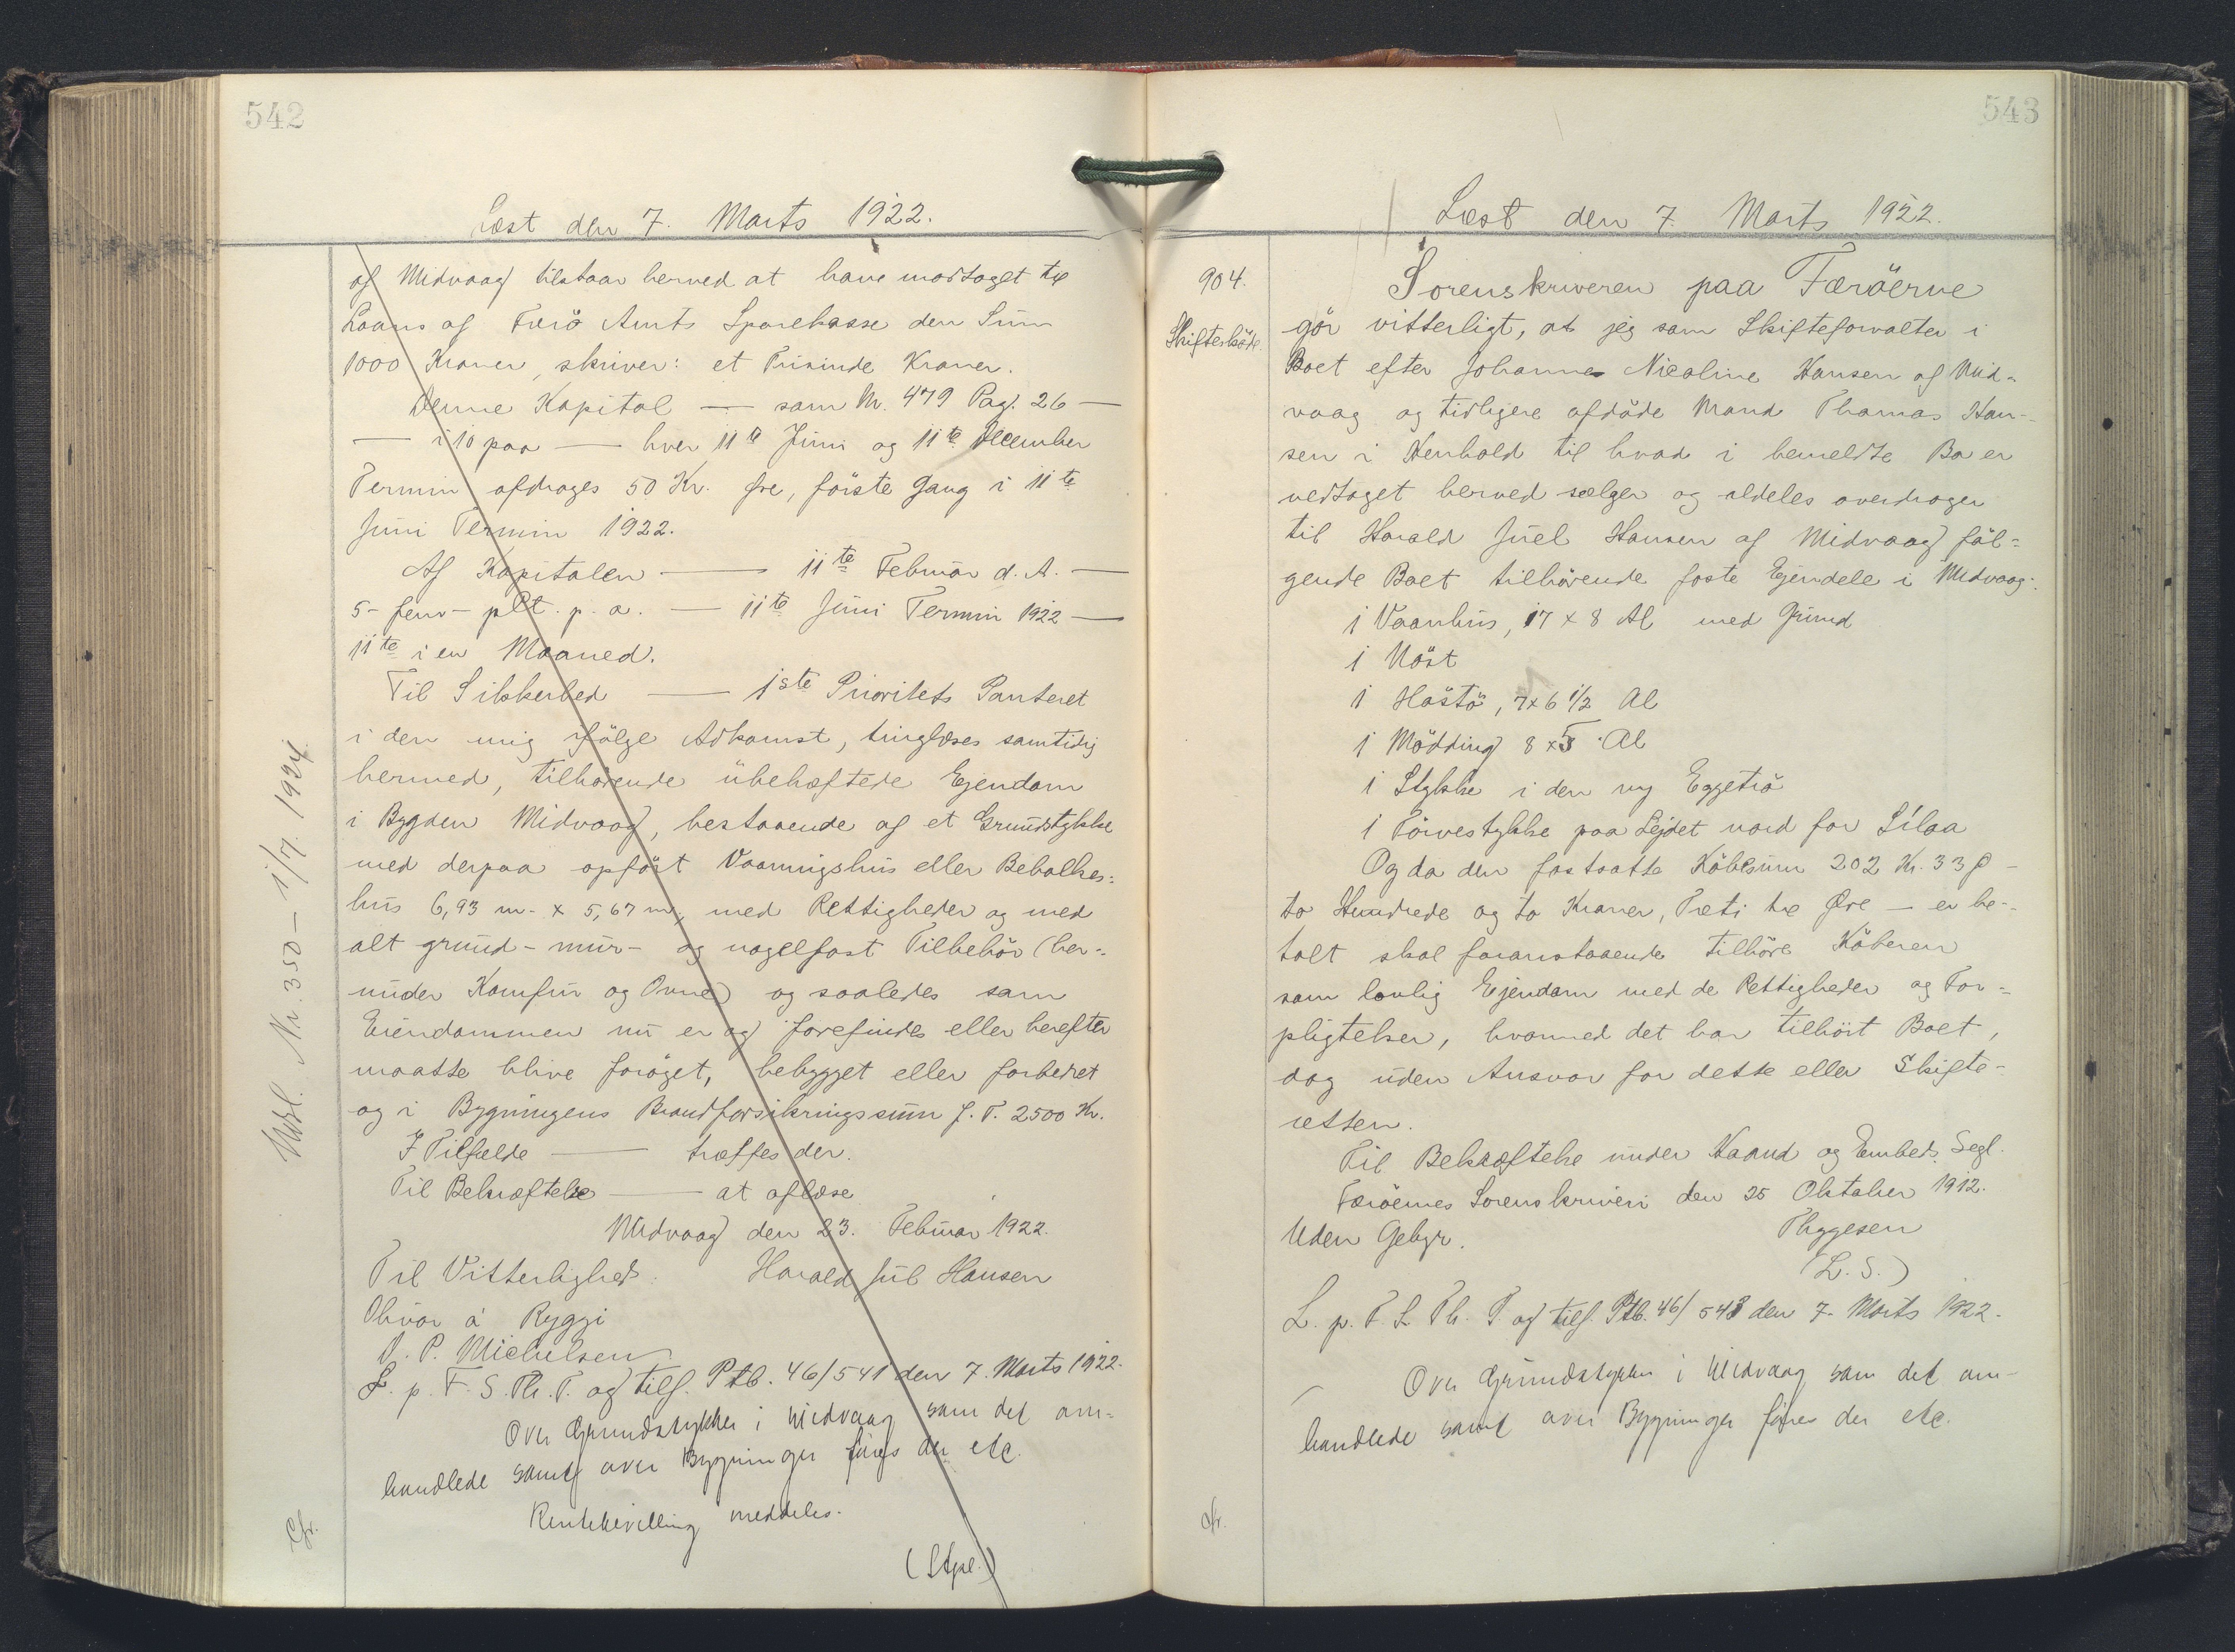 542
Læst den 7. Marts 1922.
af Midvaag tilstaar herved at have modtaget til
Laans af Færö Amts Sparekasse den Sum
1000 Kroner, skriver: et Tusinde Kroner.
Denne Kapital — som Nr. 479 Pag. 26 —
— i 10 paa — hver 11te Juni og 11te December
Termin afdrages 50 Kr. Øre, förste Gang i 11te
Juni Termin 1922.
Af Kapitalen — 11te Februar d. A. —
5 - fem - pCt. p. a. — 11te Juni Termin 1922 —
11te i en Maaned.
Til Sikkerhed — 1ste Prioritets Panteret
i den mig ifölge Adkomst, tinglæses samtidig
hermed, tilhörende übehæftede Ejendom
i Bygden Midvaag, bestaaende af et Grundstykke
med derpaa opfört Vaaningshus eller Beboelses=
hus 6,93 m. x 5,67 m, med Rettigheder og med
alt grund- mur- og nagelfast Tilbehör (her=
under Komfur og Ovne) og saaledes som
Eiendommen nu er og forefindes eller herefter
maatte blive foröget, bebygget eller forbedret
og i Bygningens Brandforsikringssum f. T. 2500 Kr.
I Tilfælde — træffes der.
Til Bekræftelse — at aflæse
Midvaag den 23. Februar 1922.
Til Vitterlighed: Harald Jul Hansen
Olivar á Ryggi
J. P. Michelsen
L. p. F. S. Th. T. og tilf. Ptb. 46/541 den 7. Marts 1922.
Over Grundstykker i Midvaag som det om=
handlede samt over Bygninger föres der etc.
Rentebevilling meddeles.
(Stpl.)
Udsl. Nr. 350 - 1/7. 1924
Cfr.
543
Læst den 7. Marts 1922.
904.
Skifteskøde.
Sorenskriveren paa Færöerne
gör vitterligt, at jeg som Skifteforvalter i
Boet efter Johanne Nicoline Hansen af Mid=
vaag og tidligere afdöde Mand Thomas Han-
sen i Henhold til hvad i bemeldte Bo er
vedtaget herved sælger og aldeles overdrager
til Harald Juel Hansen af Midvaag föl=
gende Boet tilhörende faste Ejendele i Midvaag:
1 Vaanhus, 17 x 8 Al med Grund
1 Nöst
1 Höstö, 7 x 6 1/2 Al
1 Mödding 8 x 5 Al
1 Stykke i den ny Eggetrö
1 Törvestykke paa Lejdet nord for Sílaa
Og da den fastsatte Köbesum 202 Kr. 33 Ø -
to Hundrede og to Kroner, Treti tre Øre — er be-
talt skal foranstaaende tilhöre Köberen
som lovlig Ejendom med de Rettigheder og For=
pligtelser, hvormed det har tilhört Boet,
dog uden Ansvar for dette eller Skifte-
retten.
Til Bekræftelse under Haand og Embeds Segl.
Færöernes Sorenskriveri den 25 Oktober 1912.
Uden Gebyr. Thygesen
(L. S.)
L. p. F. S. Th. T. og tilf. Ptb. 46/543 den 7. Marts 1922.
Over Grundstykker i Midvaag som det om-
handlede samt over Bygninger föres der etc.
Cfr.